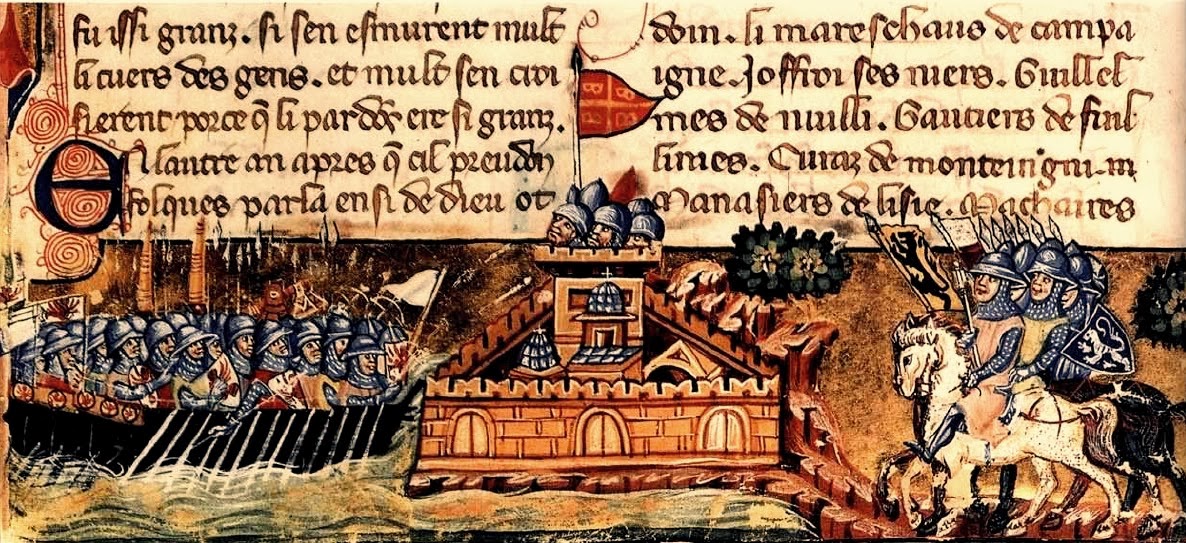 fu issi granz. si sen esmurent mult
li cuers des gens. et mult sen croi
sierent porce q̃ li pardõs ere si granz.
En lautre an apres q̃ cil preudõ
folques parla ensi de dieu ot
doin. li mareschaus de campa
igne. Joffroi ses niers. Guillel
mes de nuilli. Gautiers de fuil
limes. Euraz de monteingni.
Manasiers de lisle. Machaires